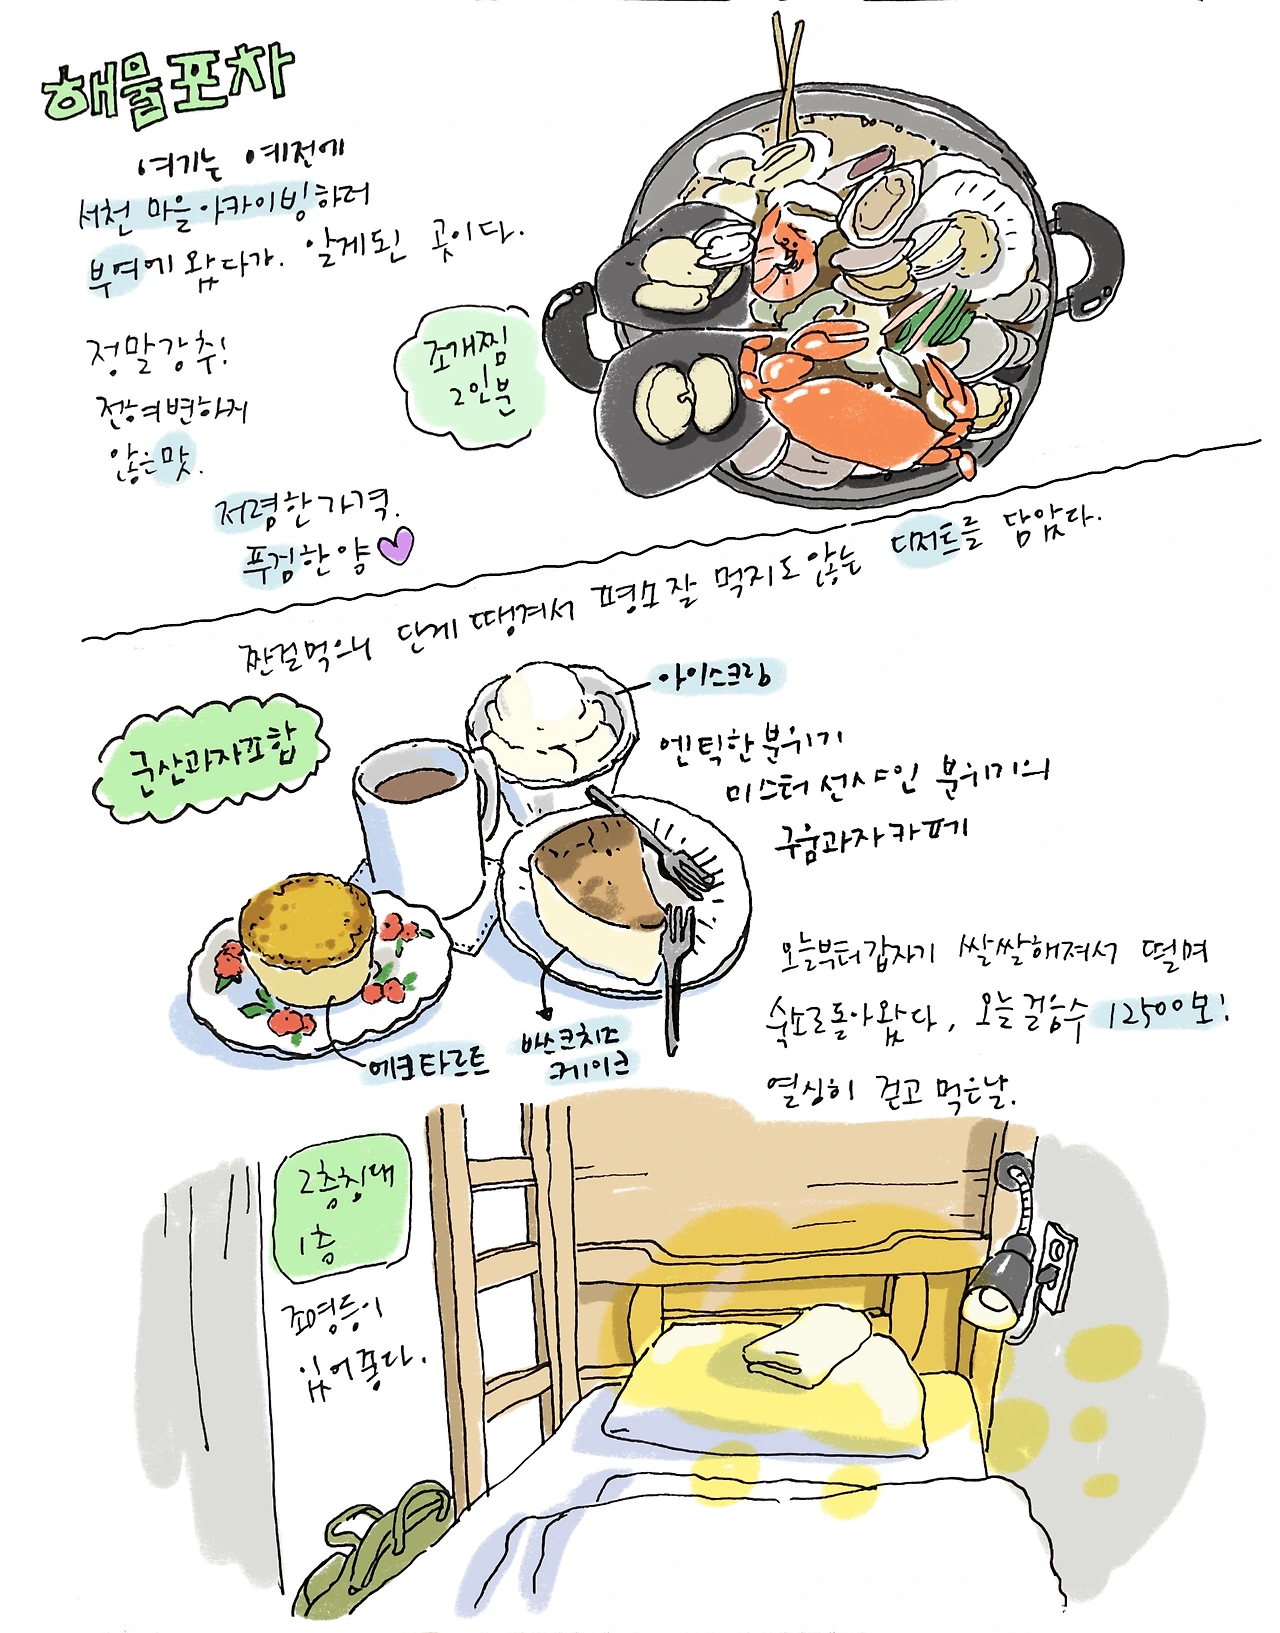 해물포차
여기는 예전에
서천 마을아카이빙하러
부여에 왔다가. 알게된 곳이다.
정말강추!
전혀변하지
않은맛.
저렴한가격.
푸검한양
조개찜
2인분
짠걸먹으니 단게 땡겨서 평소 잘 먹지도않는 디저트를 담았다.
군산과자조합
아이스크림
엔틱한분위기
미스터선샤인 분위기의
구움과자카페
에그타르트
바스크치즈
케이크
오늘부터갑자기 쌀쌀해져서 떨며
숙소로돌아왔다, 오늘걸음수 12500보!
열심히 걷고 먹은날.
2층침대
1층
조명등이
있어좋다.